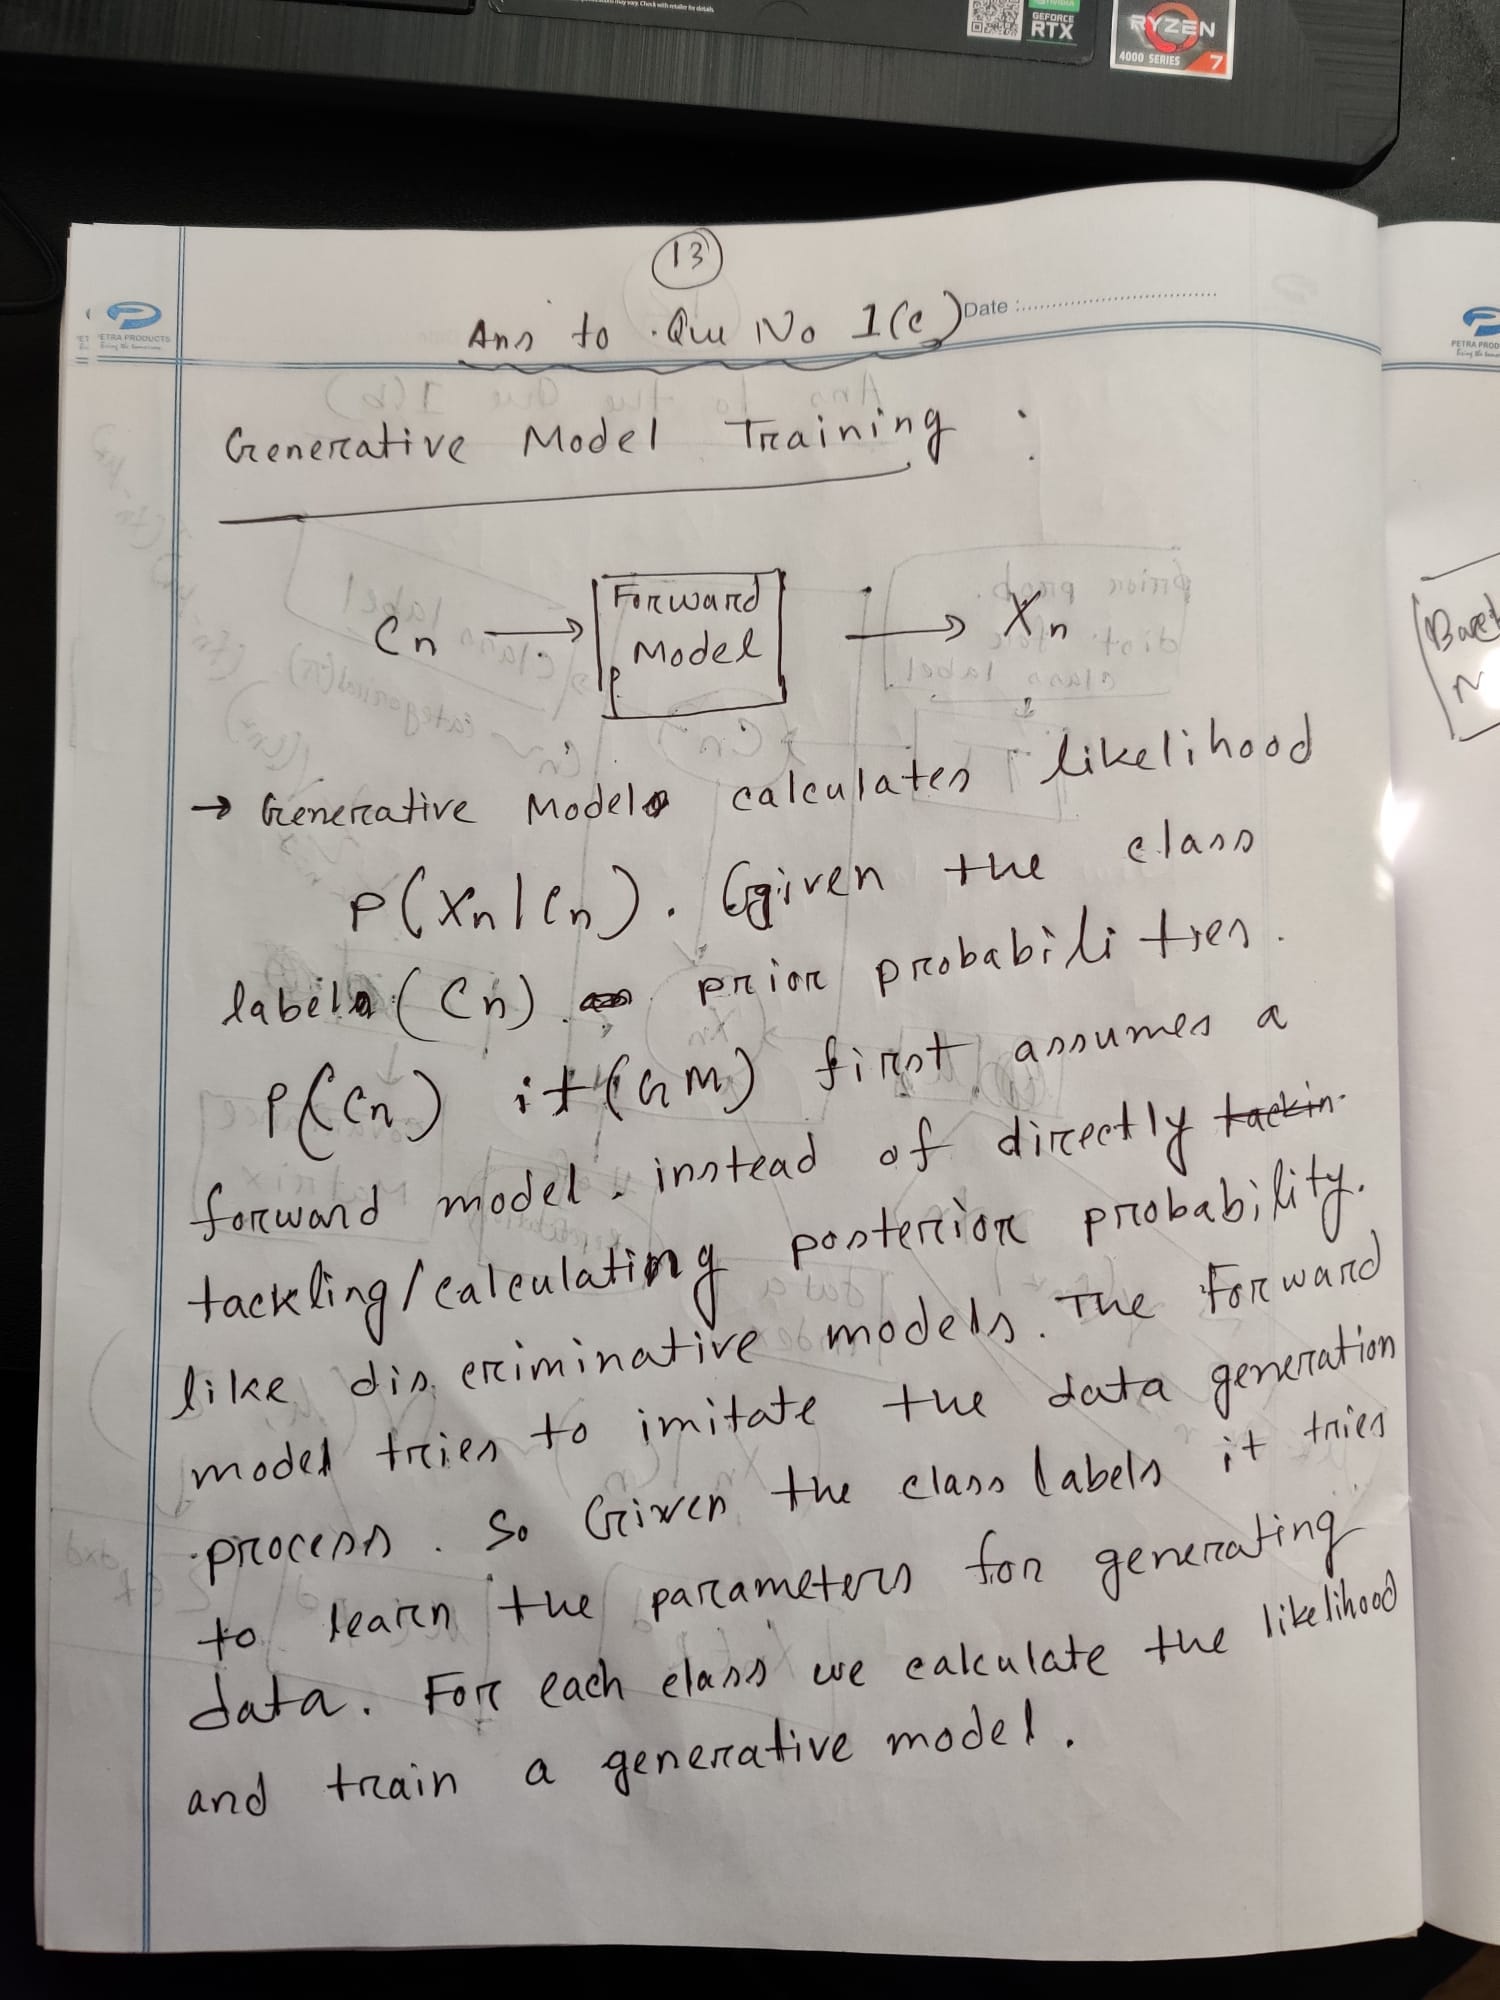 may vary. Check with retailer for details.
GEFORCE
RTX
RYZEN
4000 SERIES 7
13
Ans to Que No 1(c)
Date :
PETRA PRODUCTS
Generative Model Training :
Cn → Forward Model → Xn
→ Generative Models calculates likelihood
P(Xn|Cn). Given the class
labels (Cn) prior probabilities.
P(Cn) it (GM) first assumes a
forward model. instead of directly tackin
tackling/calculating posterior probability.
like discriminative models. The Forward
model tries to imitate the data generation
process. So Given the class labels it tries
to learn the parameters for generating
data. For each class we calculate the likelihood
and train a generative model.